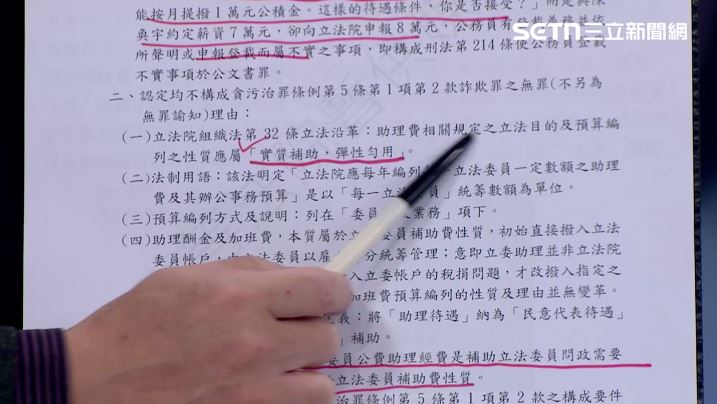 SETN三立新聞網
能按月提撥1萬元公積金。這樣的待遇條件，你是否接受？」而是與陳
奐宇約定薪資7萬元，卻向立法院申報8萬元，公務員有登載義務並依
所聲明或申報登載而屬不實之事項，即構成刑法第214條使公務員登載
不實事項於公文書罪。
二、認定均不構成貪污治罪條例第5條第1項第2款詐欺罪之無罪(不另為
無罪諭知)理由：
(一)立法院組織法第32條立法沿革：助理費相關規定之立法目的及預算編
列之性質應屬「實質補助，彈性勻用」。
(二)法制用語：該法明定「立法院應每年編列每一立法委員一定數額之助理
費及其辦公事務預算」是以「每一立法委員」統籌數額為單位。
(三)預算編列方式及說明：列在「委員 業務」項下。
(四)助理酬金及加班費，本質屬於立 委員補助費性質，初始直接撥入立法
委員帳戶， 立法委員以雇 分統籌管理；意即立委助理並非立法院
入立委帳戶的稅捐問題，才改撥入指定之
加班費預算編列的性質及理由並無變革。
義：將「助理待遇」納為「民意代表待遇」
補助。
委員公費助理經費是補助立法委員問政需要
立法委員補助費性質。
治罪條例第5條第1項第2款之構成要件